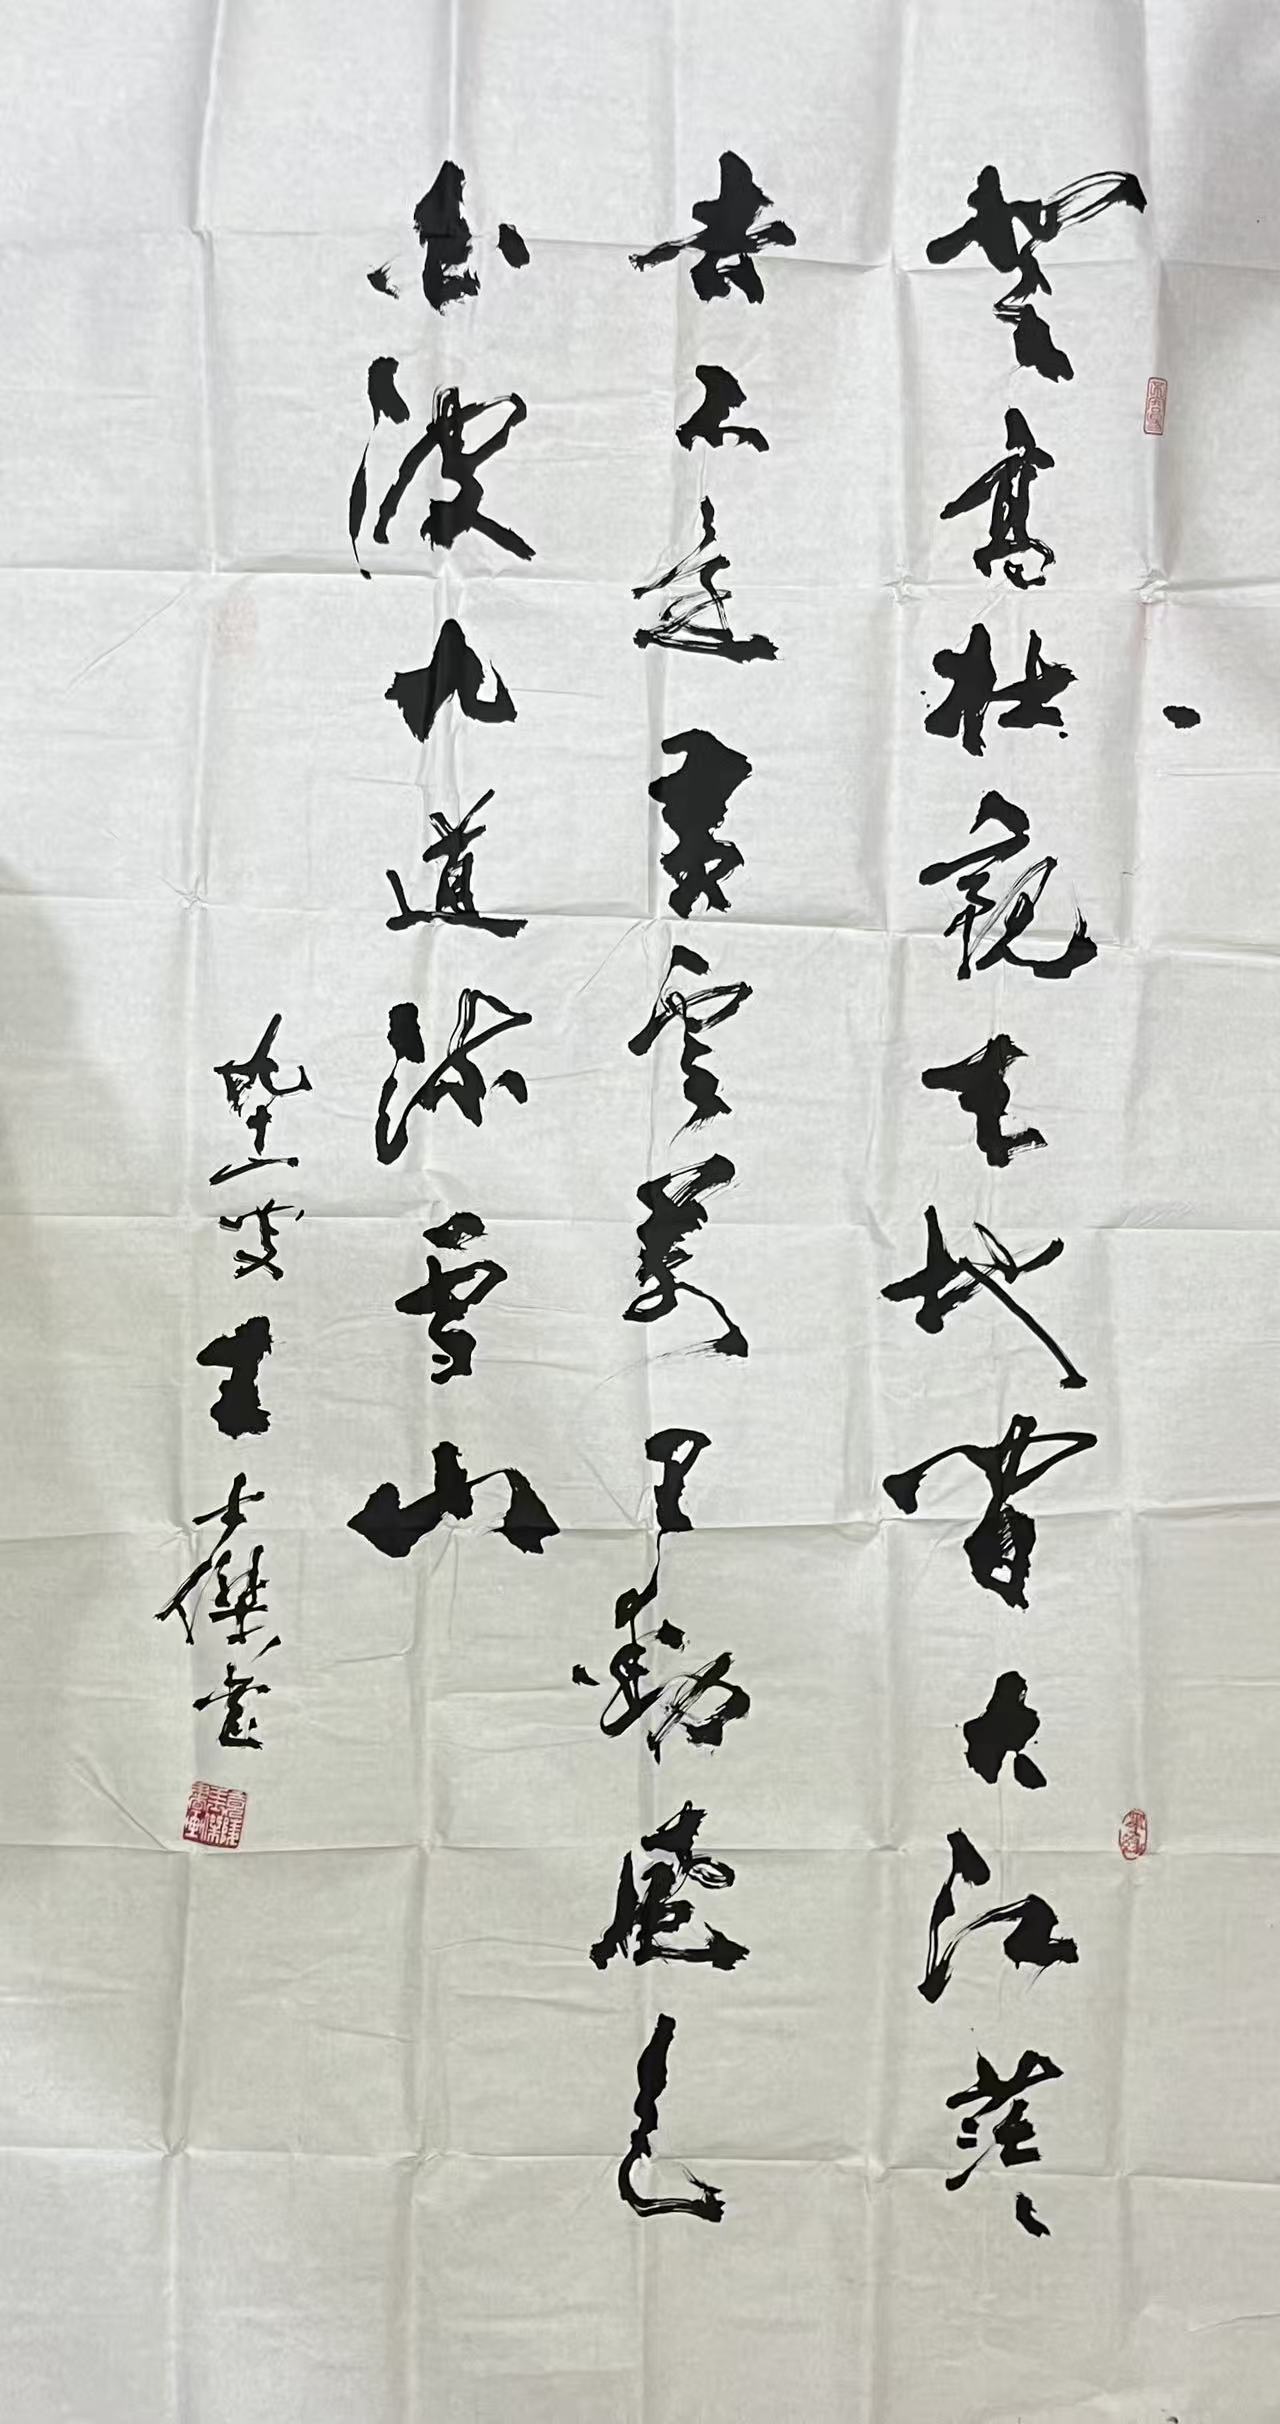 登高壯觀天地間大江茫茫
去不還黃雲萬里動風色
白波九道流雪山
叟王士傑書